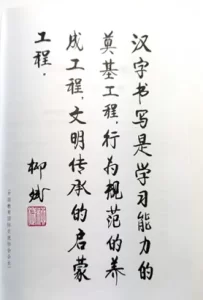 汉字书写是学习能力的
奠基工程,行为规范的养
成工程,文明传承的启蒙
工程。
柳斌